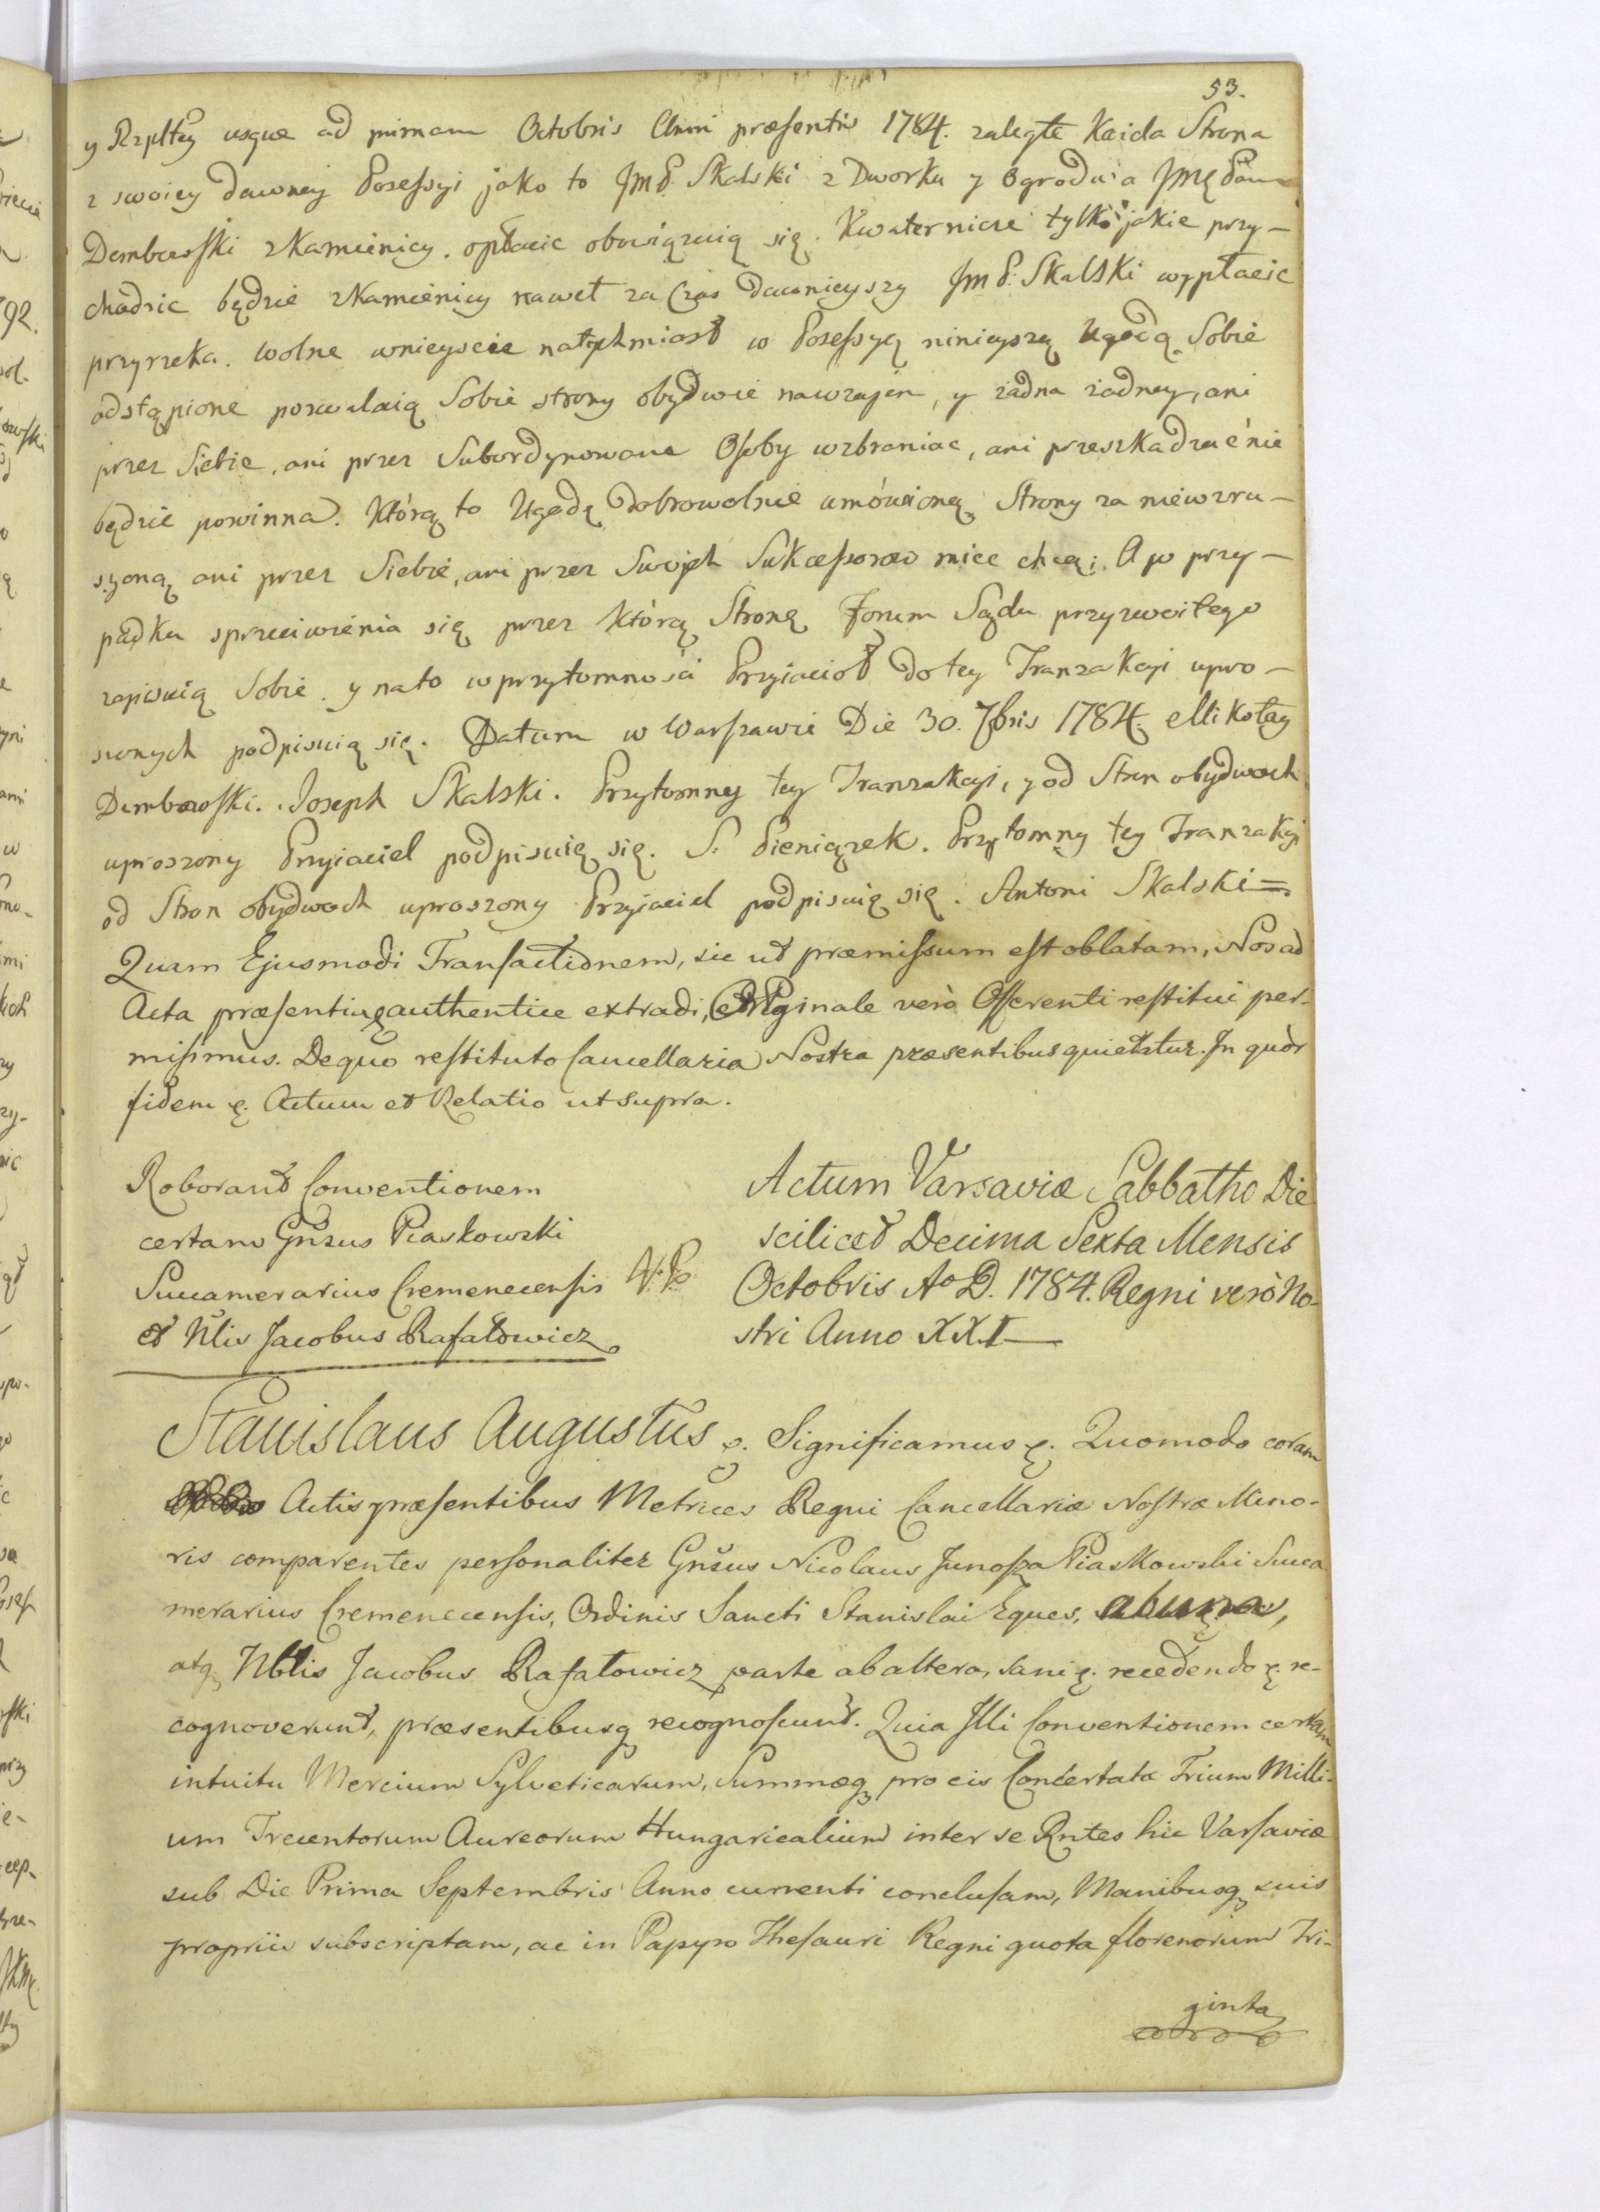 53.
y Rzpltey usque ad primam Octobris Anni præsentis 1784. zaległe Każda Strona
z swoiey dawney Possessyi jako to JmP. Skalski z Dworku y Ogrodu, a JmęPan
Dembowski z Kamienicy, opłacić obowiązuią się. Kwaternicze tylko jakie przy-
chodzić będzie z Kamienicy nawet za Czas dawnieyszy JmP. Skalski wypłacić
przyrzeka. wolne wnieyscie natychmiast w Possessyą ninieyszą Ugodą Sobie
odstąpione pozwalaią Sobie strony obydwie nawzajem, y żadna żadney, ani
przez Siebie, ani przez Subordynowane Osoby wzbraniać, ani przeszkadzać nie
będzie powinna. Którą to Ugodę dobrowolnie umówioną Strony za niewzru-
szoną ani przez Siebie, ani przez Swoich Sukcessorow mieć chcą; A w przy-
padku sprzeciwienia się przez którą Stronę Forum Sądu przyzwoitego
zapisuią Sobie. y na to w przytomności Przyiaciół do tey Tranzakcyi upro-
szonych podpisuią się. Datum w Warszawie Die 30. 7bris 1784. Mikołay
Dembowski. Joseph Skalski. Przytomny tey Tranzakcyi, y od Stron obydwoch
uproszony Przyiaciel podpisuię się. S. Pieniązek. Przytomny tey Tranzakcyi
od Stron obydwoch uproszony Przyiaciel podpisuię się. Antoni Skalski=
Quam Ejusmodi Transactionem, sic ut præmissum est oblatam, Nos ad
Acta præsentia authentice extradi, Originale verò Offerenti restitui per-
misimus. De quo restituto Cancellaria Nostra præsentibus quietatur. In quor
fidem &. Actum et Relatio ut supra.
Roborant Conventionem
certam Gnsus Piaskowski
Succamerarius Cremenecensis
et Nlis Jacobus Rafałowicz
Actum Varsaviæ Sabbatho Die
scilicet Decima Sexta Mensis
Octobris Ao D. 1784. Regni verò No-
stri Anno XXI
Stanislaus Augustus &. Significamus &. Quomodo coram
Actis præsentibus Metrices Regni Cancellariæ Nostræ Mino-
ris comparentes personaliter Gnsus Nicolaus Junosza Piaskowski Succa
merarius Cremenecensis, Ordinis Sancti Stanislai Eques,
atq3 Nblis Jacobus Rafałowicz parte ab altera, sani &. recedendo &. re-
cognoverunt, præsentibusq3 recognoscunt. Quia Illi Conventionem certam
intuitu Mercium Sylveticarum, Summæq3 pro eis Concertatæ Trium Milli-
um Trecentorum Aureorum Hungaricalium inter se Rntes hic Varsaviæ
sub Die Prima Septembris Anno currenti conclusam, Manibusq3 suis
propriis subscriptam, ac in Papyro Thesauri Regni quota florenorum Tri-
ginta